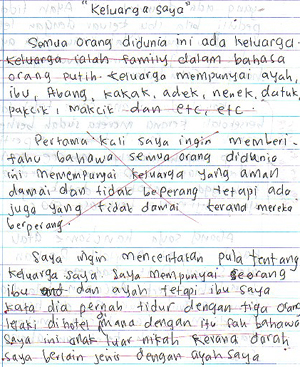 "Keluarga saya"
Semua orang didunia ini ada keluarga.
Keluarga ialah family dalam bahasa
orang putih. Keluarga mempunyai ayah,
ibu, Abang, kakak, adek, nenek, datuk,
pakcik, makcik dan etc, etc
Pertama kali saya ingin memberi-
tahu bahawa semua orang didunia
ini memempunyai keluarga yang aman
damai dan tidak beperang tetapi ada
juga yang tidak damai kerand mereka
berperang.
Saya ingin menceritakan pula tentang
keluarga saya. Saya mempunyai seorang
ibu dan ayah tetapi ibu saya
kata dia pernah tidur dengan tiga orang
lelaki dihotel mana dengan itu sah bahawa
saya ini anak luar nikah kerana darah
saya berlain jenis dengan ayah saya